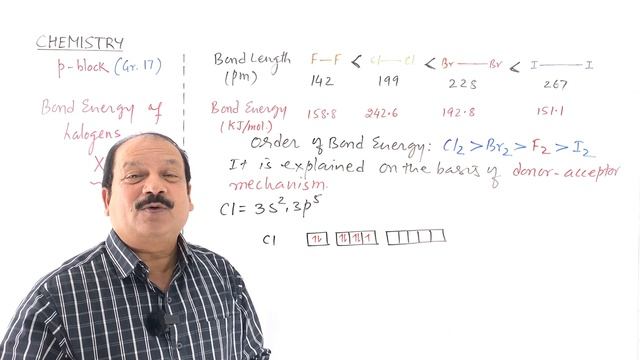 CHEMISTRY
p-block (Gr. 17)
Bond Energy of
halogens
X
Bond Length F—F < Cl—Cl < Br—Br < I—I
(pm) 142 199 228 267
Bond Energy 158.8 242.6 192.8 151.1
(KJ/mol.)
Order of Bond Energy: Cl2 > Br2 > F2 > I2
It is explained on the basis of donor-acceptor
mechanism.
Cl = 3s², 3p⁵
Cl ⥮ ⥮ ⥮ ↿